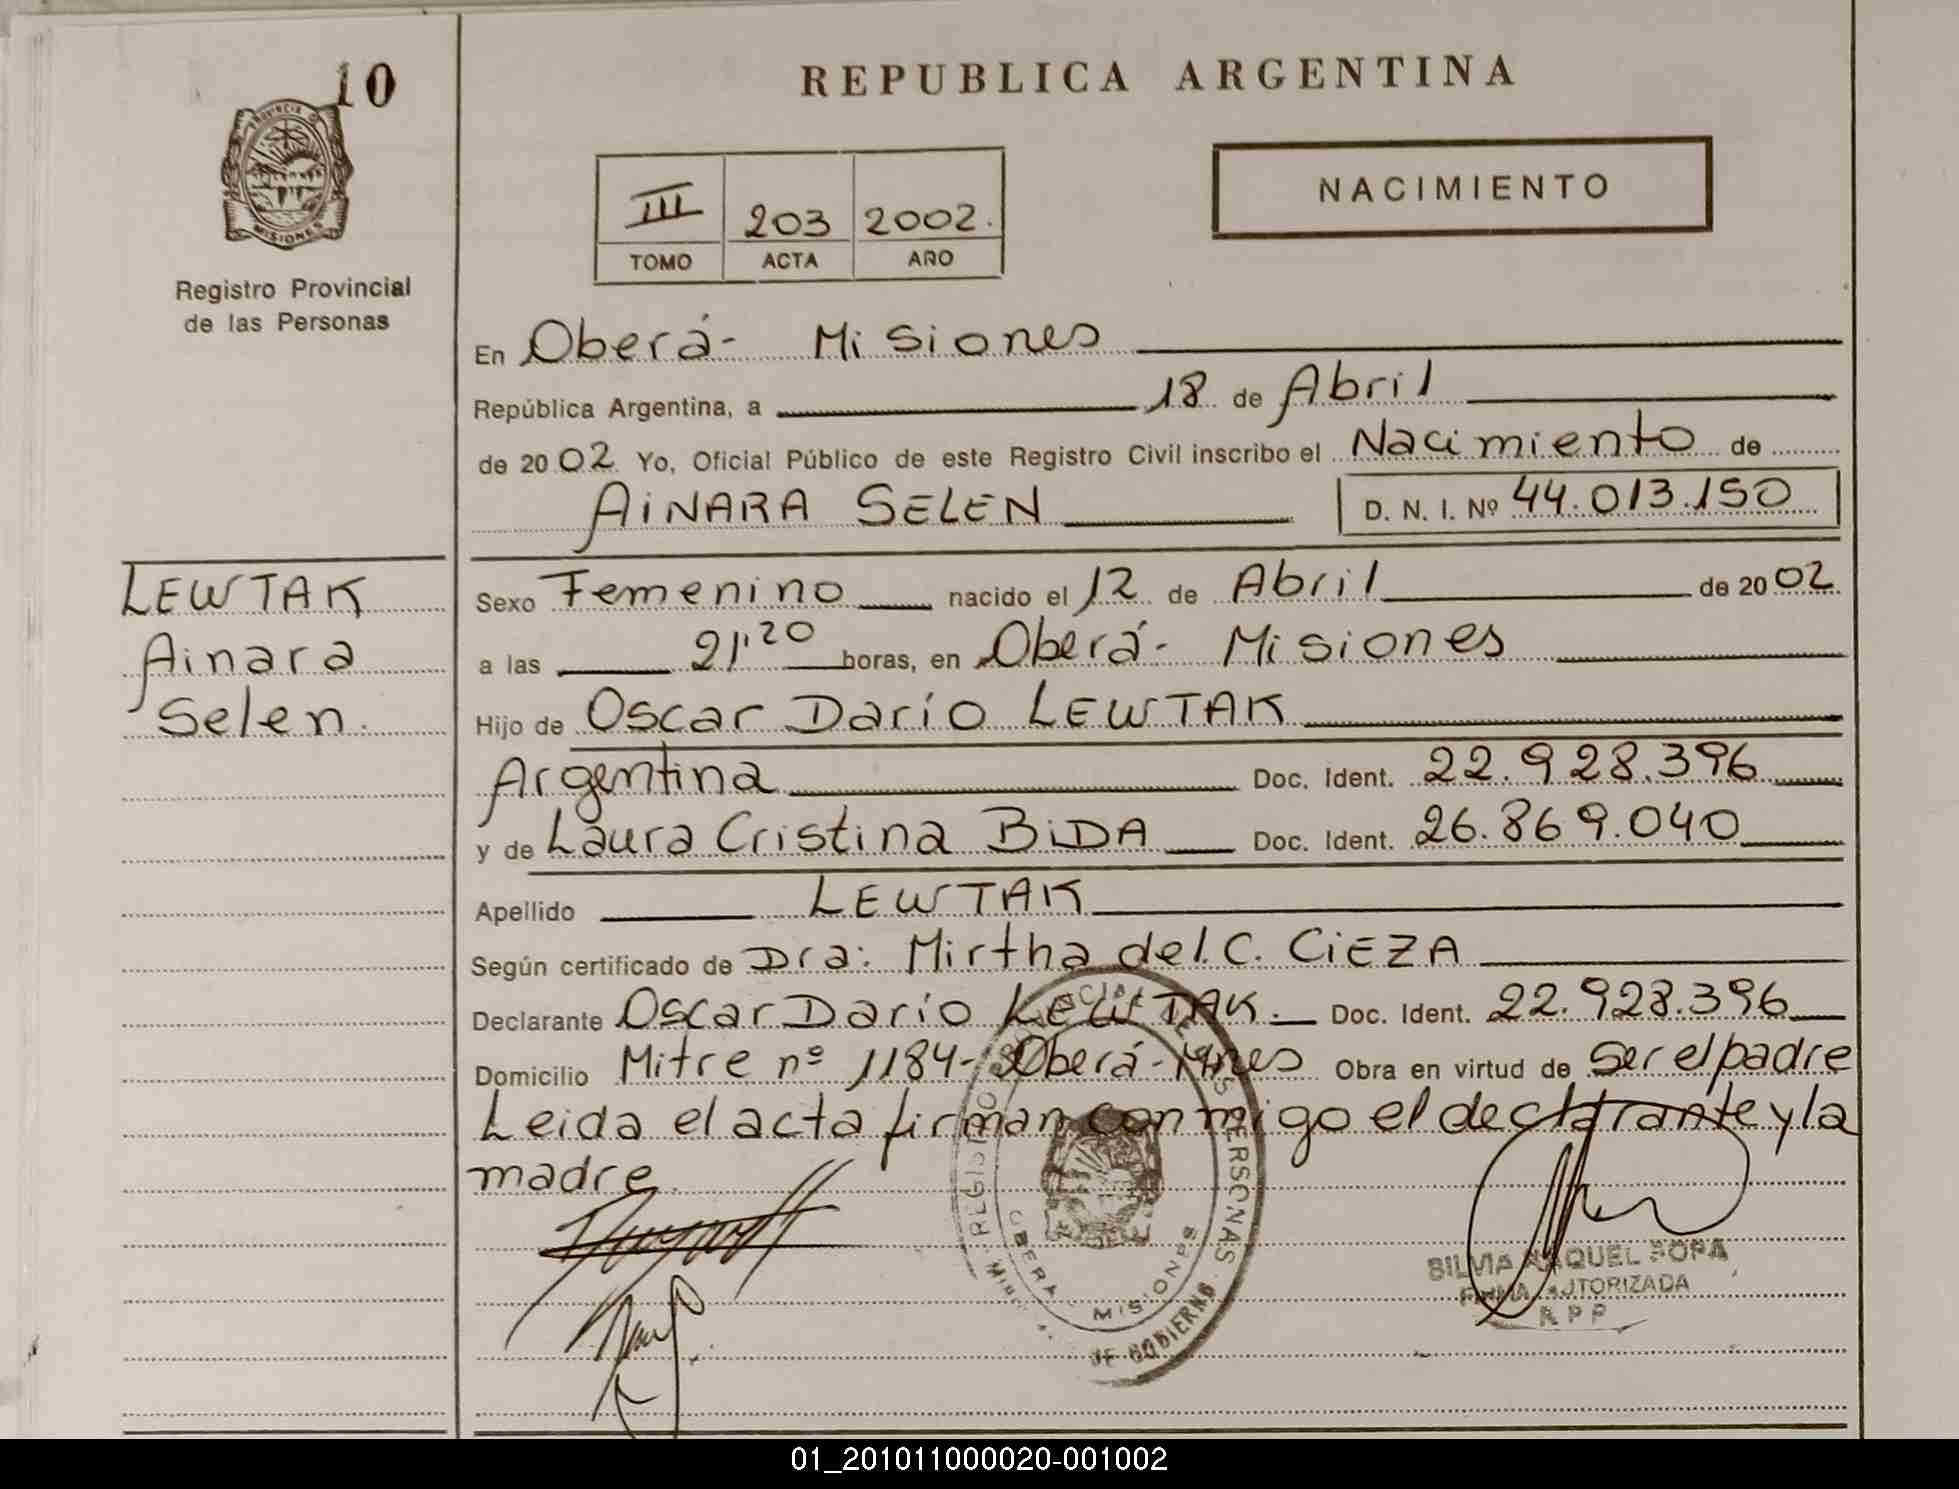 10
REPUBLICA ARGENTINA
PROVINCIA D
MISIONES
Registro Provincial
de las Personas
III 203 2002.
TOMO ACTA AÑO
NACIMIENTO
En Oberá- Misiones
República Argentina, a 18 de Abril
de 2002 Yo, Oficial Público de este Registro Civil inscribo el Nacimiento de
AiNARA SELEN D. N. I. Nº 44.013.150
LEWTAK
Ainara
Selen.
Sexo Femenino nacido el 12 de Abril de 2002
a las 21'20 horas, en Oberá- Misiones
Hijo de Oscar Darío LEWTAK
Argentina Doc. Ident. 22.928.396
y de Laura Cristina BiDA Doc. Ident. 26.869.040
Apellido LEWTAK
Según certificado de Dra: Mirtha del. C. CiEZA
Declarante Oscar Darío LEWTAK. Doc. Ident. 22.928.396
Domicilio Mitre nº 1184- Oberá-Mnes Obra en virtud de ser el padre
Leida el acta firman conmigo el declarante y la
madre.
PERSONAS
OBERA MISIONES
DE GOBIERNO
SILVIA RAQUEL
AUTORIZADA
R P P
01_201011000020-001002